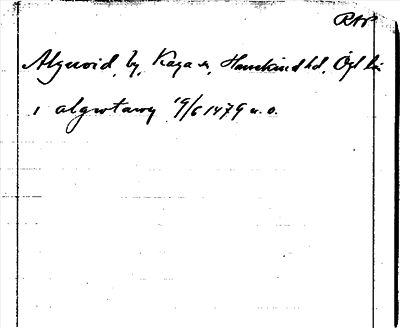 RAP
Algutvid, by, Kaga sn, Hanekinds hd, Ögl län
i algwtawy 19/6 1479 u. o.